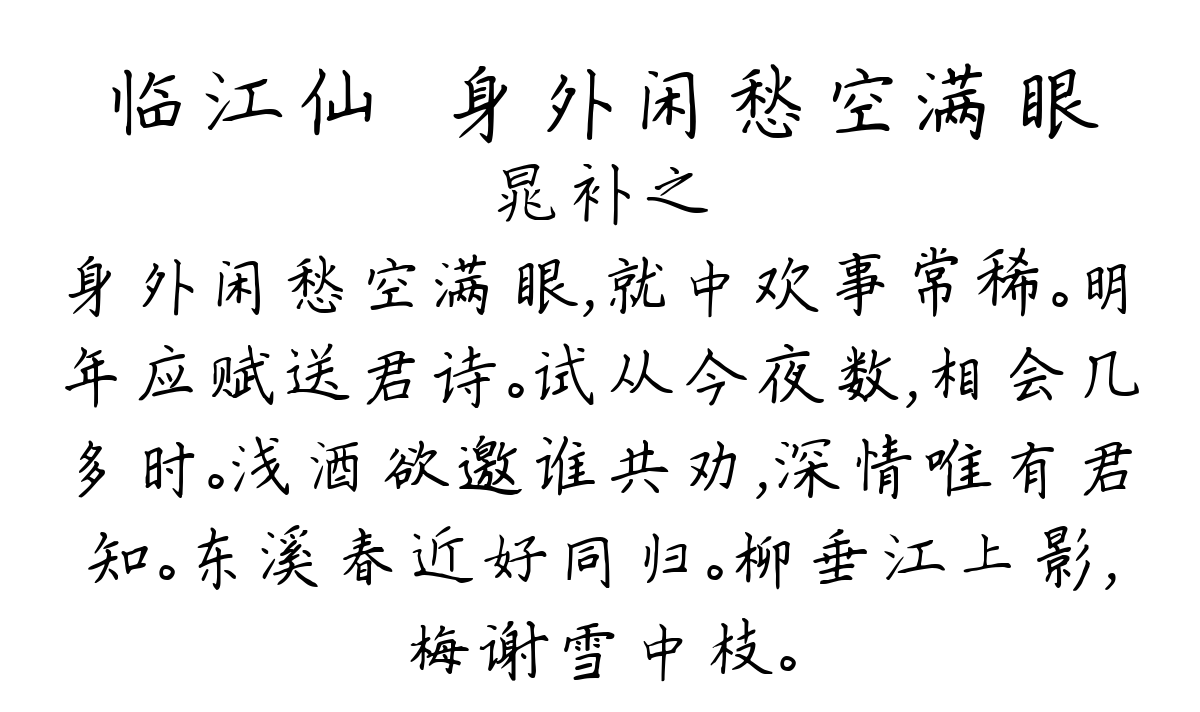 临江仙 身外闲愁空满眼
晁补之
身外闲愁空满眼,就中欢事常稀。明
年应赋送君诗。试从今夜数,相会几
多时。浅酒欲邀谁共劝,深情唯有君
知。东溪春近好同归。柳垂江上影,
梅谢雪中枝。